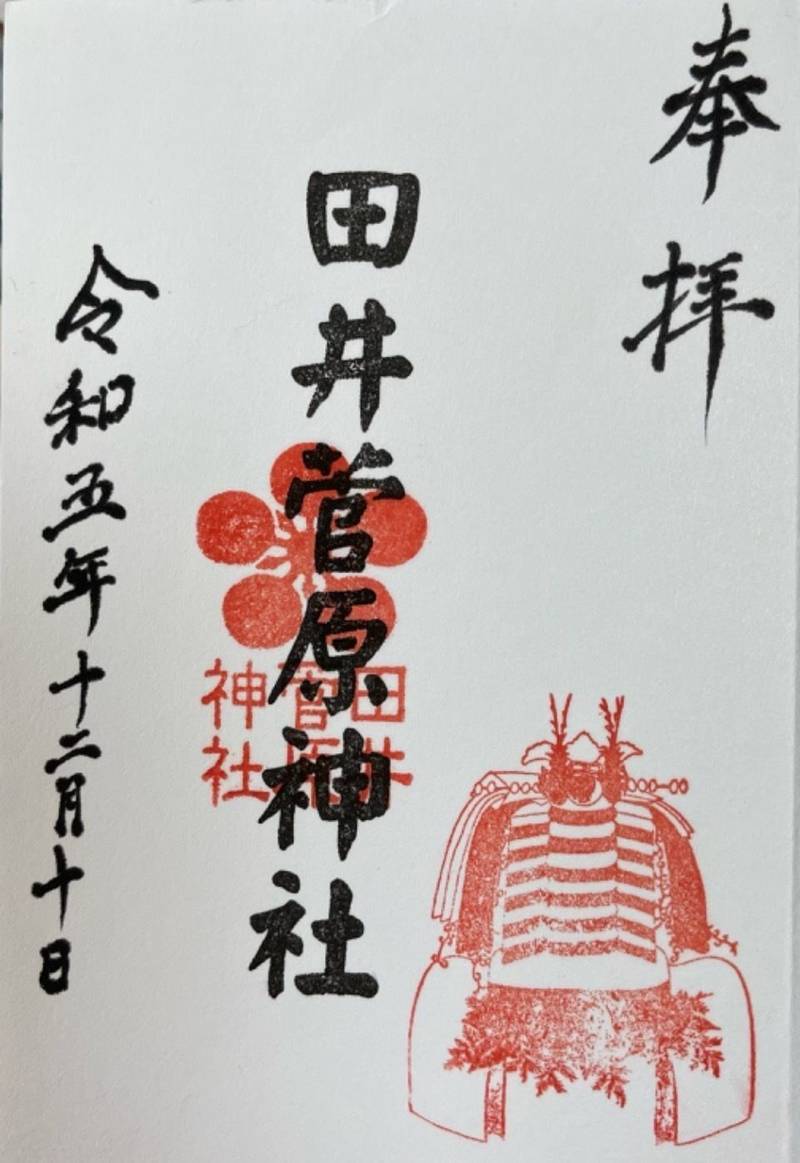 奉拝
田井菅原神社
田井
菅原
神社
令和五年十二月十日